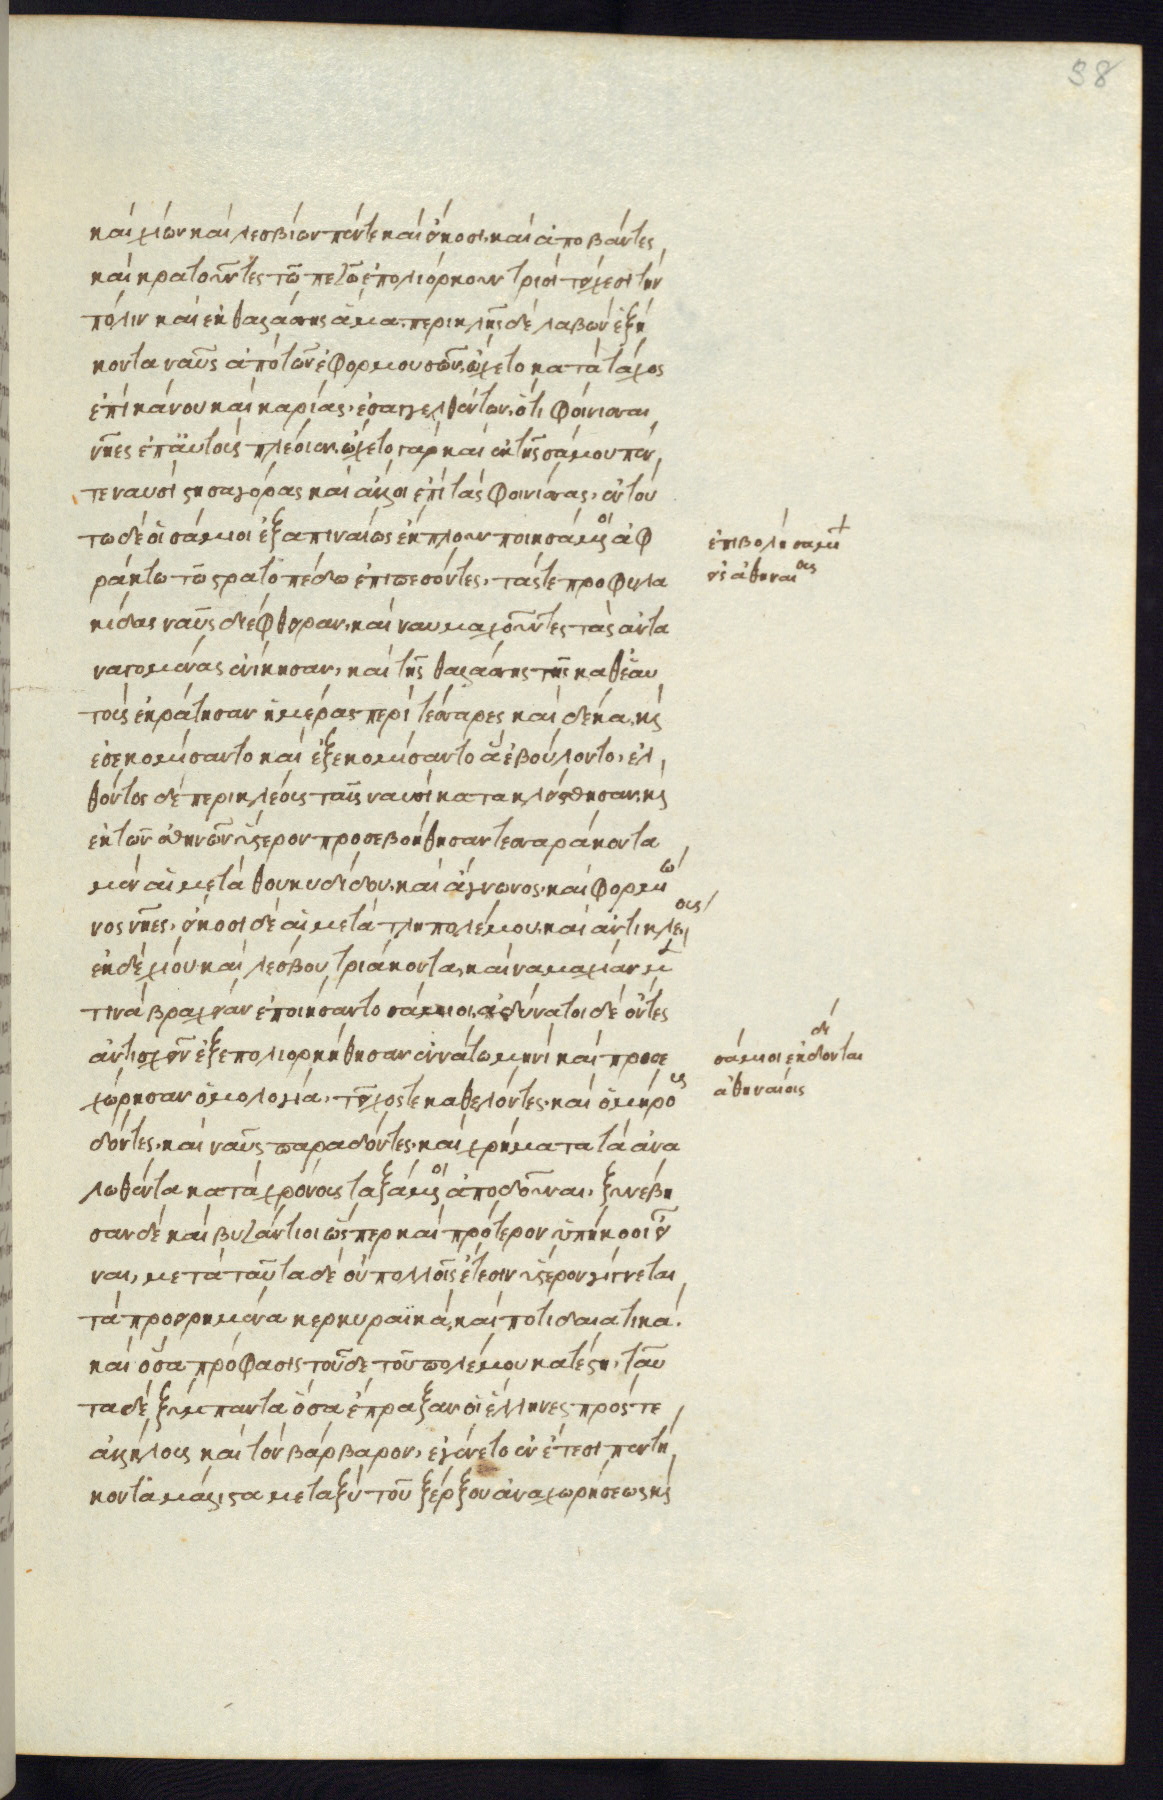 38
καὶ χίων καὶ λεσβίων πέντε καὶ εἴκοσι. καὶ ἀποβάντες
καὶ κρατοῦντες τῶ πεζῶ ἐπολιόρκουν τρισὶ τείχεσι τὴν
πόλιν καὶ ἐκ θαλάσσης ἅμα. περικλῆς δὲ λαβὼν ἑξή
κοντα ναῦς ἀπὸ τῶν ἐφορμουσῶν, ᾤχετο κατὰ τάχος
ἐπὶ καύνου καὶ καρίας, ἐσαγγελθέντων, ὅτι φοίνισσαι
νῆες ἐπ' αὐτοὺς πλέουσιν. ᾤχετο γὰρ καὶ ἐκ τῆς σάμου πέν
τε ναυσὶ στησαγόρας καὶ ἄλλοι ἐπὶ τὰς φοινίσσας, ἐν τού
τω δὲ οἱ σάμιοι ἐξαπιναίως ἔκπλουν ποιησάμενοι ἀφ
ράκτω τῶ στρατοπέδω ἐπιπεσόντες, τάς τε προφυλα
κίδας ναῦς διέφθειραν, καὶ ναυμαχοῦντες τὰς ἀντα
ναγομένας ἐνίκησαν, καὶ τῆς θαλάσσης τῆς καθ' ἑαυ
τοὺς ἐκράτησαν ἡμέρας περὶ τέσσαρες καὶ δέκα, καὶ
ἐσεκομίσαντο καὶ ἐξεκομίσαντο ἃ ἐβούλοντο, ἐλ
θόντος δὲ περικλέους ταῖς ναυσὶ κατεκλείσθησαν, καὶ
ἐκ τῶν ἀθηνῶν ὕστερον προσεβοήθησαν τεσσαράκοντα
μὲν αἱ μετὰ θουκυδίδου. καὶ ἅγνωνος. καὶ φορμίω
νος νῆες, εἴκοσι δὲ αἱ μετὰ τληπολέμου. καὶ ἀντικλέους
ἐκ δὲ χίου καὶ λέσβου τριάκοντα, καὶ ναυμαχίαν μέν
τινα βραχεῖαν ἐποιήσαντο σάμιοι. ἀδύνατοι δὲ ὄντες
ἀντισχεῖν ἐξεπολιορκήθησαν ἐννάτω μηνὶ καὶ προσε
χώρησαν ὁμολογία, τεῖχός τε καθελόντες. καὶ ὁμήρους
δόντες. καὶ ναῦς παραδόντες. καὶ χρήματα τὰ ἀνα
λωθέντα κατὰ χρόνους ταξάμενοι ἀποδοῦναι, ξυνέβη
σαν δὲ καὶ βυζάντιοι ὥσπερ καὶ πρότερον ὑπήκοοι εἶ
ναι, μετὰ ταῦτα δὲ οὐ πολλοῖς ἔτεσιν ὕστερον γίγνεται
τὰ προειρημένα κερκυραϊκά, καὶ ποτιδαιατικά.
καὶ ὅσα πρόφασις τοῦδε τοῦ πολέμου κατέστη, ταῦ
τα δὲ ξύμπαντα ὅσα ἔπραξαν οἱ ἕλληνες πρός τε
ἀλλήλους καὶ τὸν βάρβαρον, ἐγένετο ἐν ἔτεσι πεντή
κοντα μάλιστα μεταξὺ τοῦ ξέρξου ἀναχωρήσεως καὶ
ἐπιβολὴ σαμί
εἰς ἀθηναίους
σάμιοι ἐκδίδονται
ἀθηναίοις